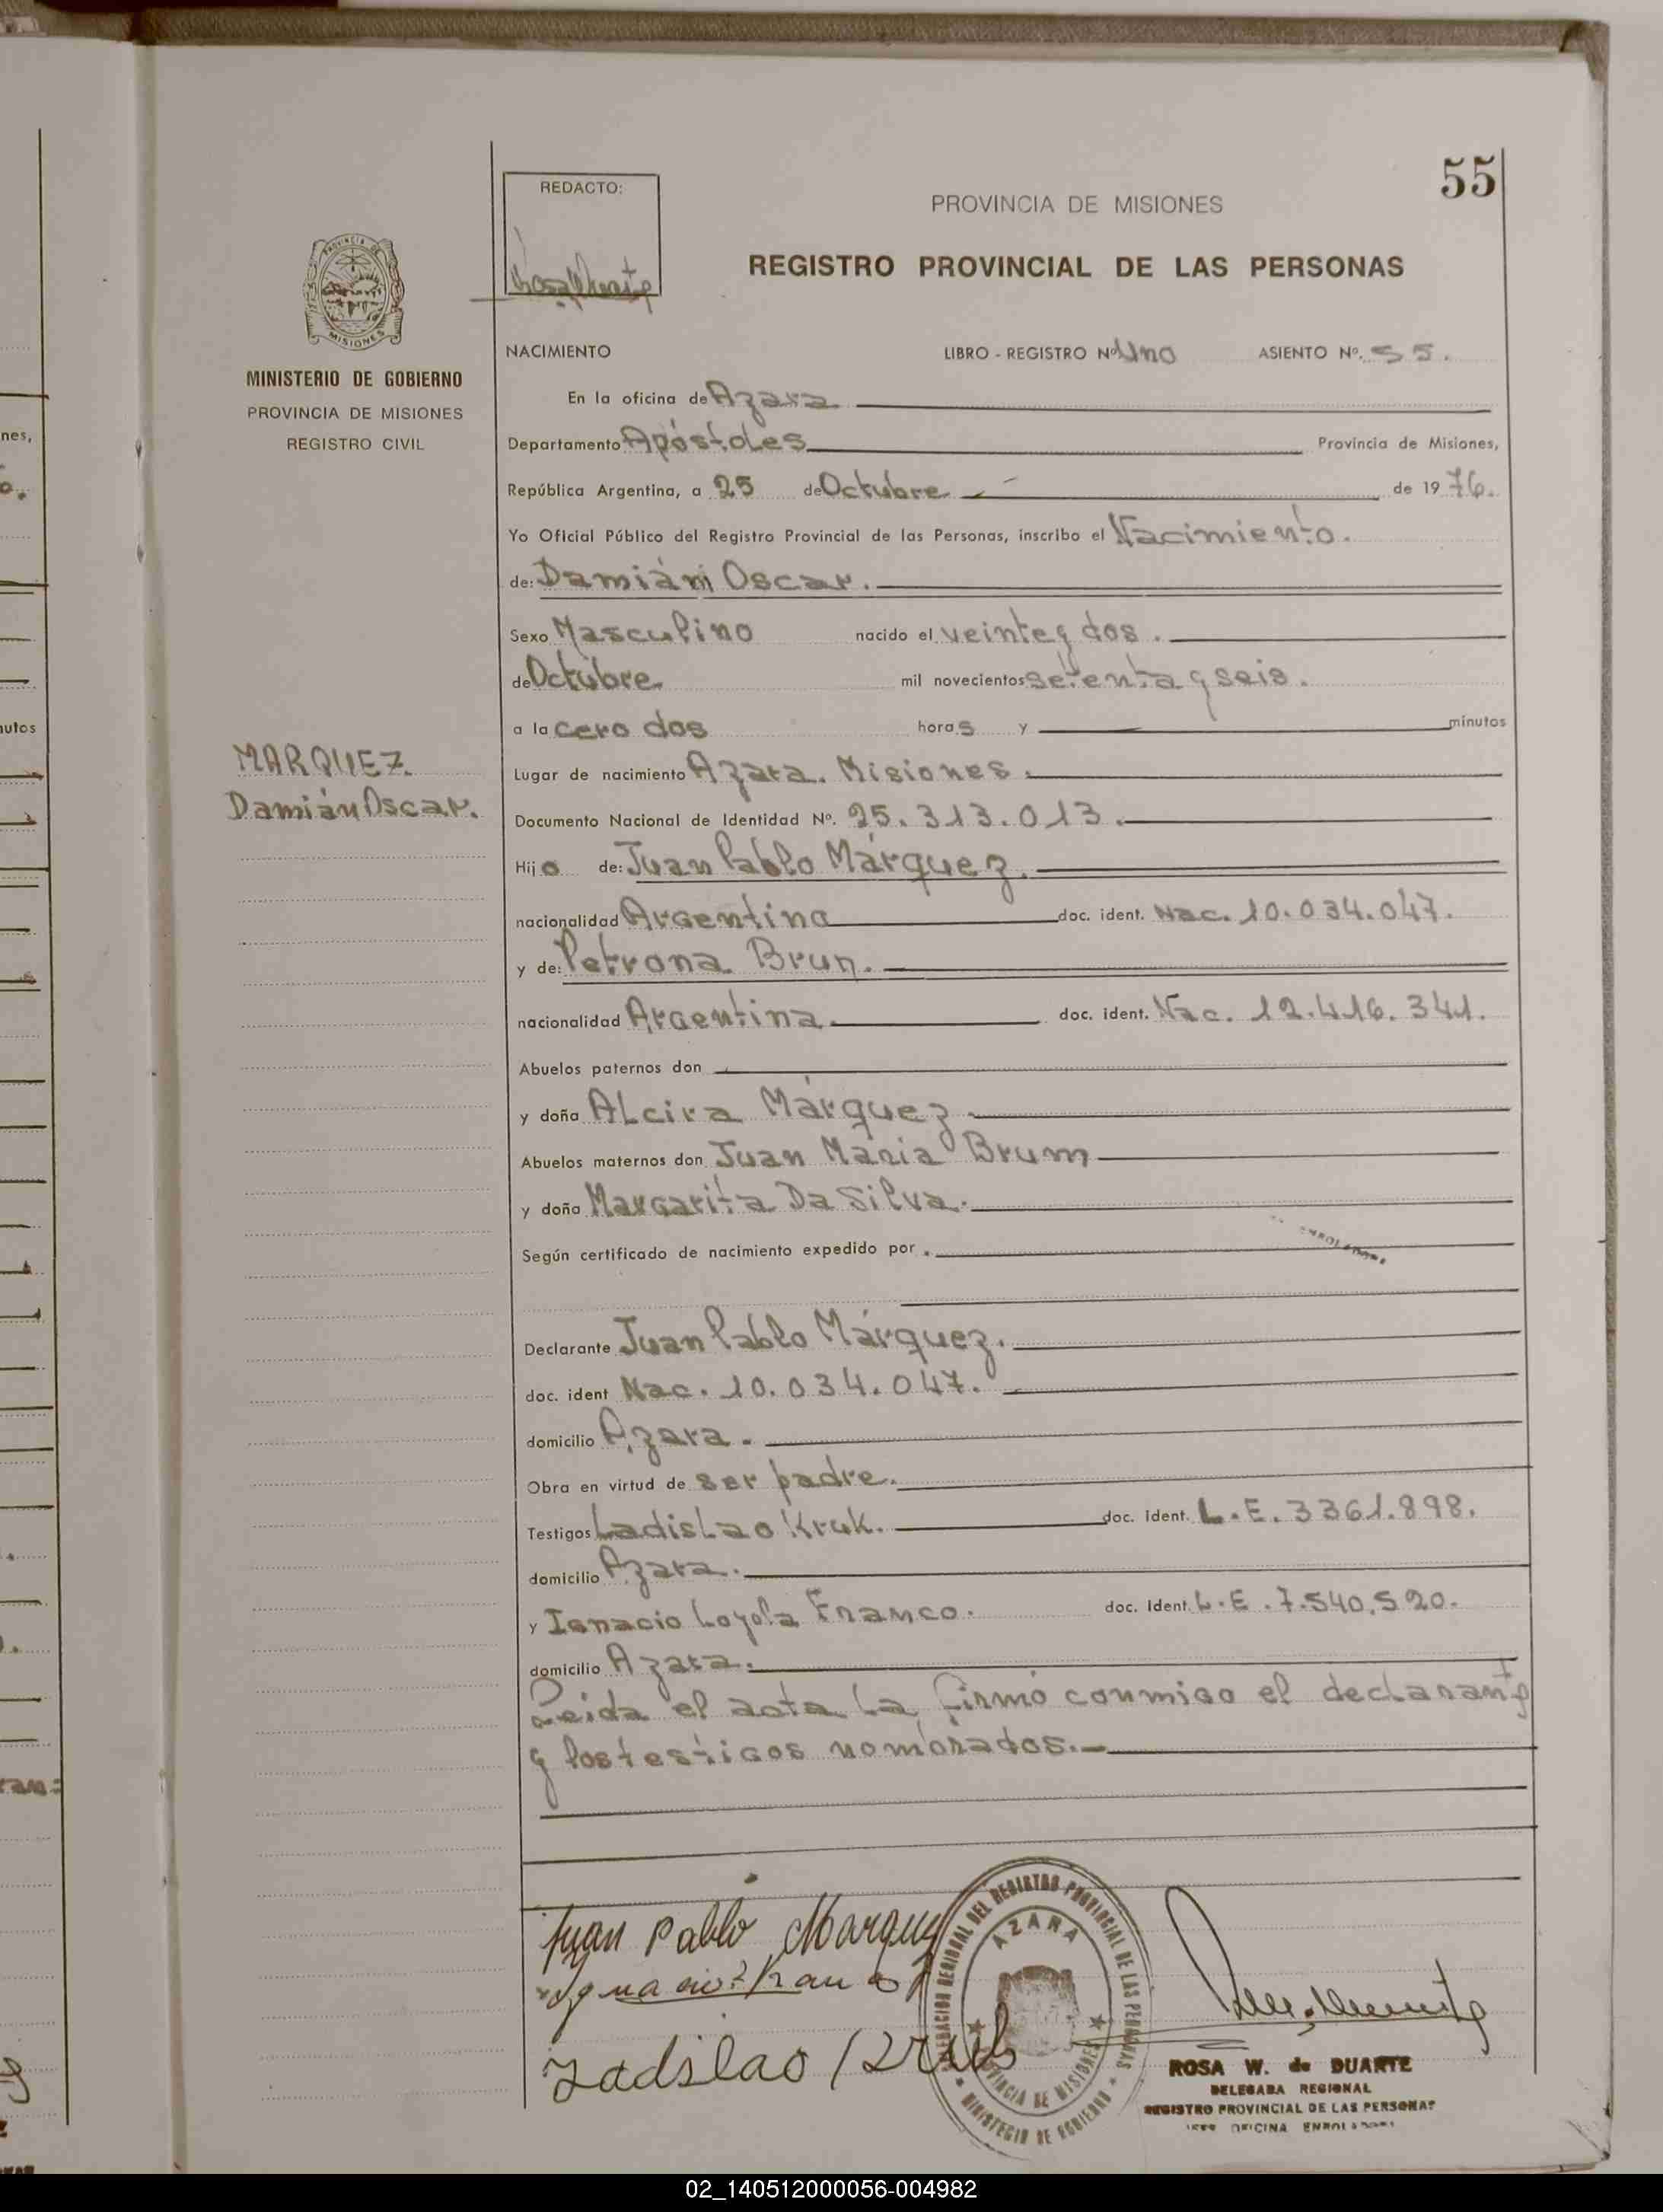 55
REDACTO:
PROVINCIA DE MISIONES
REGISTRO PROVINCIAL DE LAS PERSONAS
PROVINCIA DE
MISIONES
MINISTERIO DE GOBIERNO
PROVINCIA DE MISIONES
REGISTRO CIVIL
NACIMIENTO LIBRO - REGISTRO Nº Uno ASIENTO Nº. 55.
En la oficina de Azara
Departamento Apóstoles Provincia de Misiones,
República Argentina, a 25 de Octubre de 1976.
Yo Oficial Público del Registro Provincial de las Personas, inscribo el Nacimiento.
de: Damián Oscar.
Sexo Masculino nacido el veinte y dos.
de Octubre mil novecientos setenta y seis.
a la cero dos horas y minutos
MARQUEZ
Damián Oscar.
Lugar de nacimiento Azara. Misiones.
Documento Nacional de Identidad Nº. 25.313.013.
Hijo de: Juan Pablo Márquez.
nacionalidad Argentina doc. ident. Nac. 10.034.047.
y de: Petrona Brun.
nacionalidad Argentina doc. ident. Nac. 12.416.341.
Abuelos paternos don
y doña Alcira Márquez
Abuelos maternos don Juan María Brum
y doña Margarita Da Silva.
Según certificado de nacimiento expedido por .
Declarante Juan Pablo Márquez.
doc. ident Nac. 10.034.047.
domicilio Azara.
Obra en virtud de ser padre.
Testigos Ladislao Kruk. doc. ident. L.E. 3361.898.
domicilio Azara.
y Ignacio Loyola Franco. doc. Ident. L.E. 7.540.520.
domicilio Azara.
Leida el acta la firmó conmigo el declarante
y los testigos nombrados.
Juan Pablo Marquez
Ladislao Kruk
DELEGACION REGIONAL DEL REGISTRO PROVINCIAL DE LAS PERSONAS
AZARA
PROVINCIA DE MISIONES
MINISTERIO DE GOBIERNO
ROSA W. de DUARTE
DELEGADA REGIONAL
REGISTRO PROVINCIAL DE LAS PERSONAS
OFICINA
02_140512000056-004982